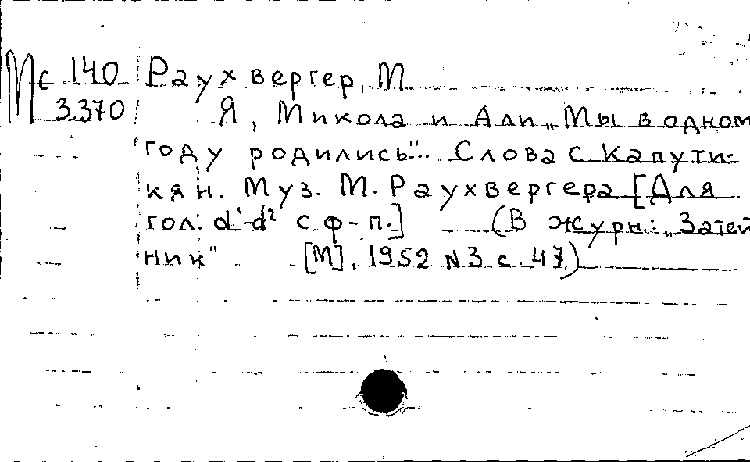 Мс 140 Раухвергер, М
3370 Я, Микола и Али „Мы в одном
году родились"... Слова С Капути-
кян. Муз. М. Раухвергера [Для
гол. d¹-d² с ф-п.] (В журн: „Затей
ник" [М], 1952 N 3 с. 47)